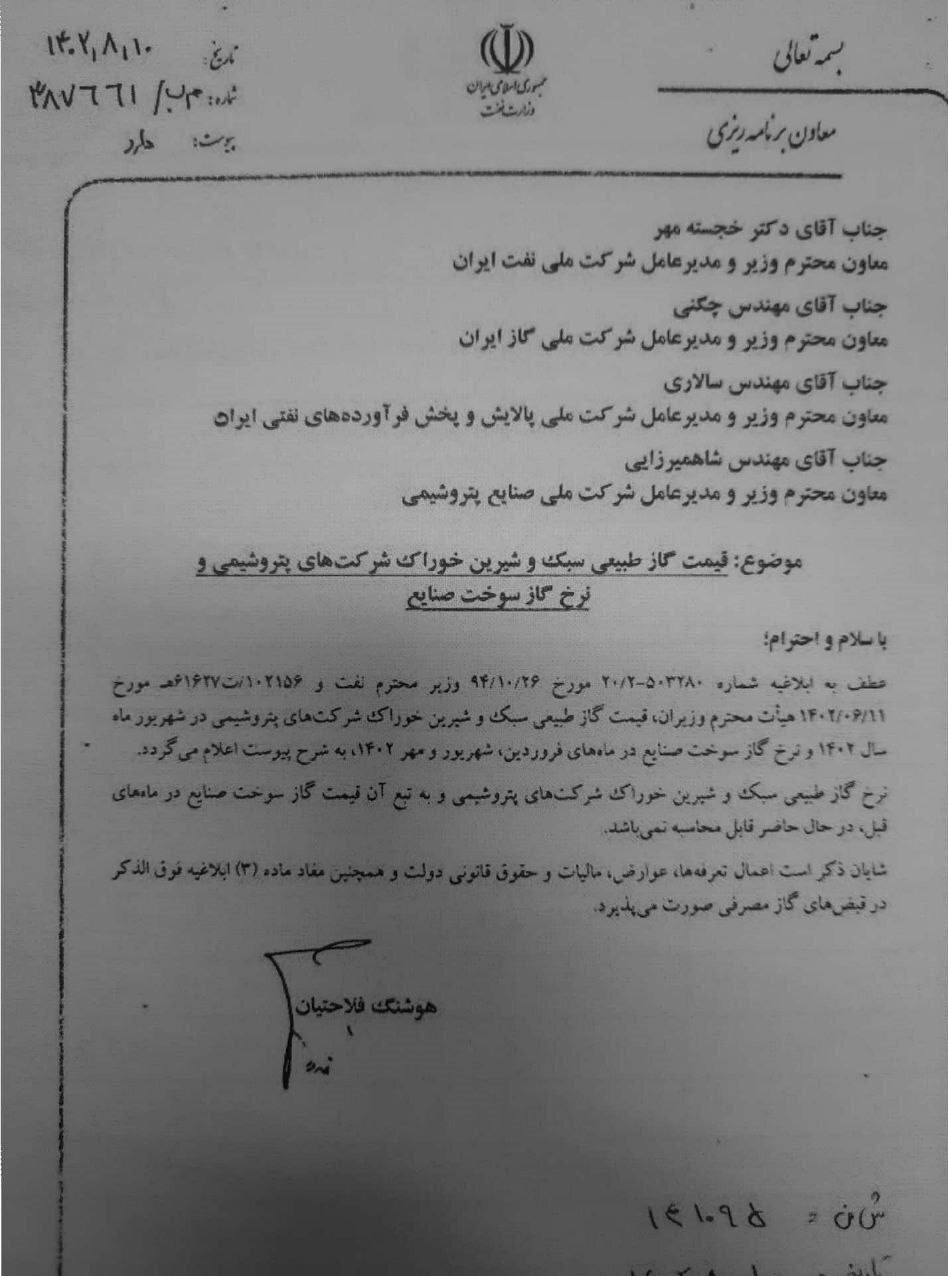 بسمه تعالی
جمهوری اسلامی ایران
وزارت نفت
معاون برنامه ریزی
تاریخ: ۱۴۰۲,۸,۱۰
شماره: م ب/ ۳۸۷۶۶۱
پیوست: دارد
جناب آقای دکتر خجسته مهر
معاون محترم وزیر و مدیرعامل شرکت ملی نفت ایران
جناب آقای مهندس چگنی
معاون محترم وزیر و مدیرعامل شرکت ملی گاز ایران
جناب آقای مهندس سالاری
معاون محترم وزیر و مدیرعامل شرکت ملی پالایش و پخش فرآورده‌های نفتی ایران
جناب آقای مهندس شاهمیرزایی
معاون محترم وزیر و مدیرعامل شرکت ملی صنایع پتروشیمی
موضوع: قیمت گاز طبیعی سبک و شیرین خوراک شرکت‌های پتروشیمی و
نرخ گاز سوخت صنایع
با سلام و احترام؛
عطف به ابلاغیه شماره ۵۰۳۲۸۰-۲۰/۲ مورخ ۹۴/۱۰/۲۶ وزیر محترم نفت و ۱۰۲۱۵۶/ت۶۱۶۲۷هـ مورخ
۱۴۰۲/۰۶/۱۱ هیأت محترم وزیران، قیمت گاز طبیعی سبک و شیرین خوراک شرکت‌های پتروشیمی در شهریور ماه
سال ۱۴۰۲ و نرخ گاز سوخت صنایع در ماه‌های فروردین، شهریور و مهر ۱۴۰۲، به شرح پیوست اعلام می‌گردد.
نرخ گاز طبیعی سبک و شیرین خوراک شرکت‌های پتروشیمی و به تبع آن قیمت گاز سوخت صنایع در ماه‌های
قبل، در حال حاضر قابل محاسبه نمی‌باشد.
شایان ذکر است اعمال تعرفه‌ها، عوارض، مالیات و حقوق قانونی دولت و همچنین مفاد ماده (۳) ابلاغیه فوق الذکر
در قبض‌های گاز مصرفی صورت می‌پذیرد.
هوشنگ فلاحتیان